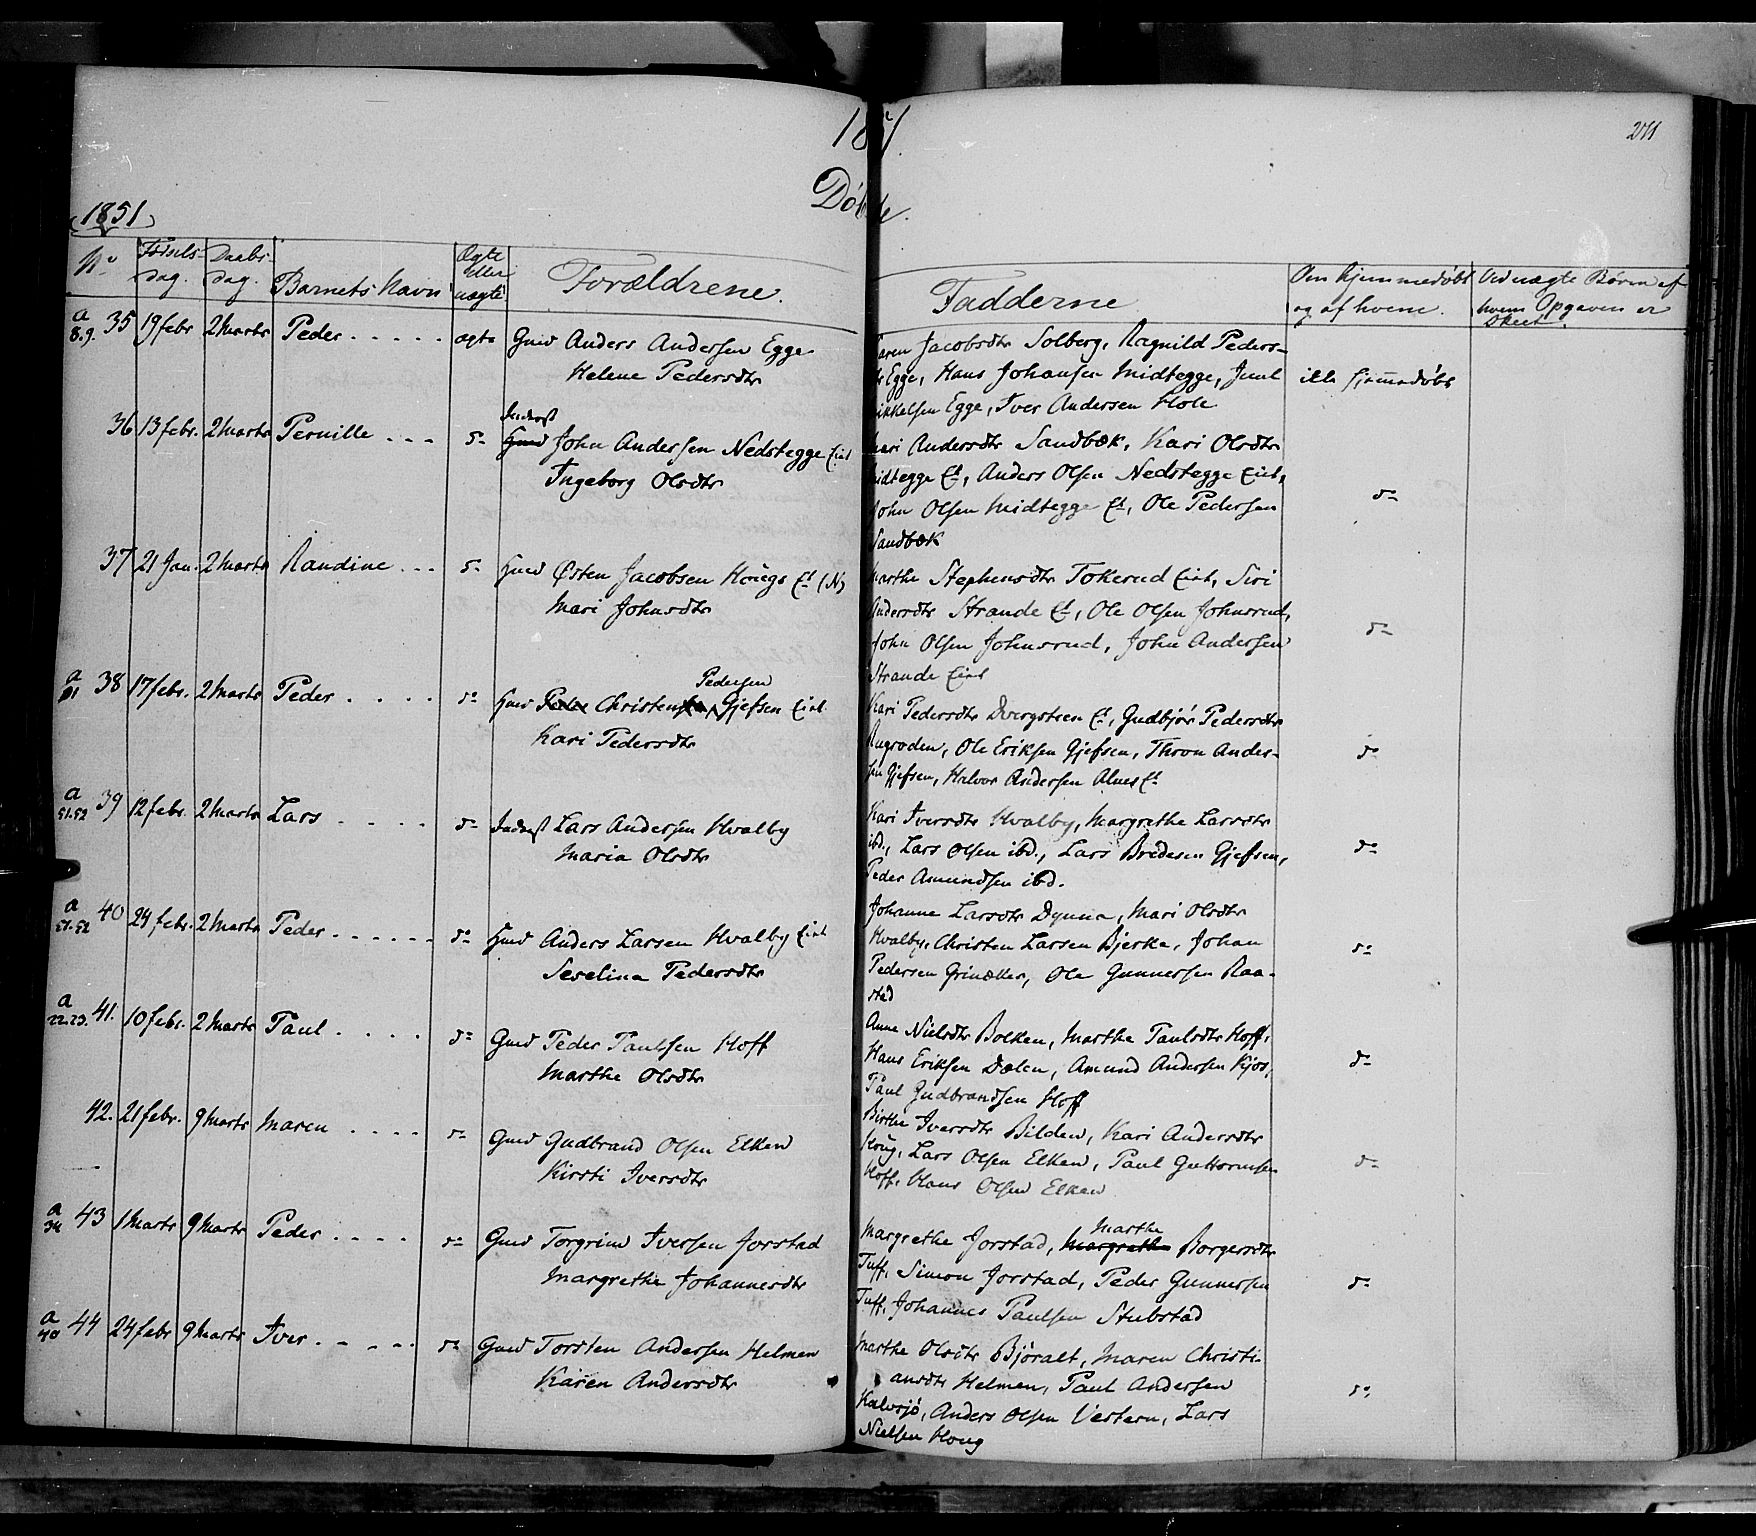 1851.
211
Döbte.
1851
No Fødsels- Dag. Daabs- Dag. Barnets Navn Ægte eller uægte Forældrene. Fadderne Om hjemmedøbt og af hvem. Ved uægte Børn af hvem Opgaven er skeet.
a 8.9. 35 19 febr 2 Marts Peder ..... ægte Gmd Anders Andersen Egge
Helene Pedersdtr
Karen Jacobsdtr Solberg, Ragnild Peders-
dtr Egge, Hans Johansen Midtegge, Juul
Mikkelsen Egge, Iver Andersen Hole
ikke hjemmedøbt
36 13 febr. 2 Marts Pernille ... do Inderst
Gmd John Andersen Nedstegge Eiet
Ingeborg Olsdtr
Mari Andersdtr Sandbæk, Kari Olsdtr
Midtegge Et, Anders Olsen Nedstegge Eiet,
John Olsen Midtegge Et, Ole Pedersen
Sandbæk
do
37 21 Jan. 2 Marts Randine ... do Hmd Østen Jacobsen Hougs Et (N)
Mari Johnsdtr
Marthe Stephensdtr Tokerud Eiet, Siri
Andersdtr Strande Et, Ole Olsen Johnsrud,
John Olsen Johnsrud, John Andersen
Strande Eiet
do
a 38 17 febr. 2 Marts Peder .... do Pedersen
Hmd Peder Christensen Gjefsen Eiet
Kari Pedersdtr
Kari Pedersdtr Dvergsteen Et, Gudbjør Pedersdtr
Augroden, Ole Eriksen Gjefsen, Thron Ander-
sen Gjefsen, Halvor Andersen Alm Et
do
a 51.52 39 12 febr. 2 Marts Lars .... do Inderst Lars Andersen Hvalby
Maria Olsdtr
Kari Iversdtr Hvalby, Margrethe Larsdtr
ibd., Lars Olsen ibd., Lars Bredesen Gjefsen,
Peder Asmundsen ibd.
do
a 51.52 40 24 febr. 2 Marts Peder ...... do Hmd Anders Larsen Hvalby Eiet
Seselina Pedersdtr
Johanne Larsdtr Dynna, Mari Olsdtr
Hvalby, Christen Larsen Bjerke, Johan
Pedersen Grinaker, Ole Gunnersen Raa-
stad
do
a 22.23. 41. 10 febr. 2 Marts Paul .... do Gmd Peder Paulsen Hoff
Marthe Olsdtr
Anne Nielsdtr Bolken, Marthe Paulsdtr Hoff,
Hans Eriksen Dælen, Amund Andersen Kjos,
Paul Gudbrandsen Hoff
do
42. 21 febr. 9 Marts Maren .... do Gmd Gudbrand Olsen Elken
Kirsti Iversdtr
Birthe Iversdtr Bilden, Kari Andersdtr
Houg, Lars Olsen Elken, Paul Guttormsen
Hoff, Hans Olsen Elken
do
a 34 43 1 Marts 9 Marts Peder .... do Gmd Torgrim Iversen Jorstad
Margrethe Johannesdtr
Marthe
Margrethe Jorstad, Margrethe Borgersdtr
Tuff, Simon Jorstad, Peder Gunnersen
Tuff, Johannes Paulsen Stubstad
do
a 40 44 24 febr 9 Marts Iver ..... do Gmd Torsten Andersen Helmen
Karen Andersdtr
Marthe Olsdtr Bjøralt, Maren Christi-
ansdtr Helmen, Paul Andersen
Kalvsjø, Anders Olsen Vestern, Lars
Nielsen Houg
do